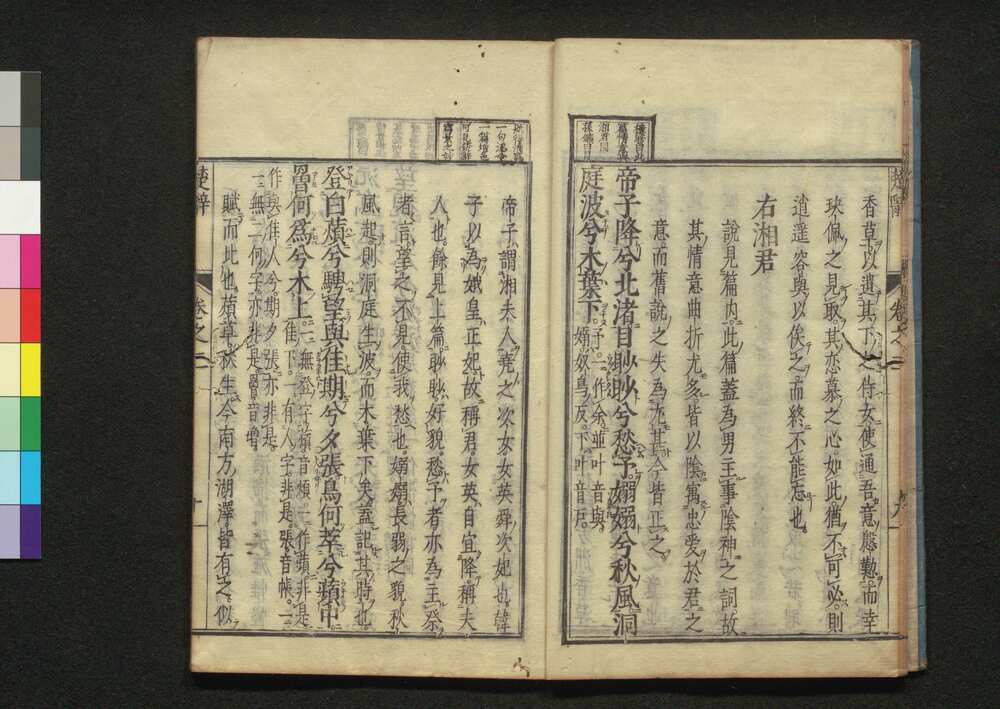 香草以遺其下之侍女使通吾意慇懃而幸
玦佩之見取其恋慕之心如此猶不可必則
逍遥容與以俟之而終不能忘也
右湘君
說見篇内此篇蓋為男主事陰神之詞故
其情意曲折尤多皆以陰寓忠愛於君之
意而舊說之失為尤甚今皆正之
帝子降兮北渚目眇眇兮愁予嫋嫋兮秋風洞
庭波兮木葉下
予一作余並叶音與
嫋奴鳥反下叶音戸
楚辭
卷之二
九
帝子謂湘夫人尭之次女女英舜次妃也韓
子以為娥皇正妃故稱君女英自宜降稱夫
人也餘見上篇眇眇好貌愁予者亦為主祭
者言望之不見使我愁也嫋嫋長弱之貌秋
風起則洞庭生波而木葉下矣蓋記其時也
登白薠兮騁望與佳期兮夕張鳥何萃兮蘋中
罾何為兮木上
一無登字薠音煩一作蘋非是
佳下一有人字非是張音帳一
作與佳人兮期夕張亦非是
一無二何字亦非是罾音增
賦而比也薠草秋生今南方湖澤皆有之似
楚辭
卷之二
十